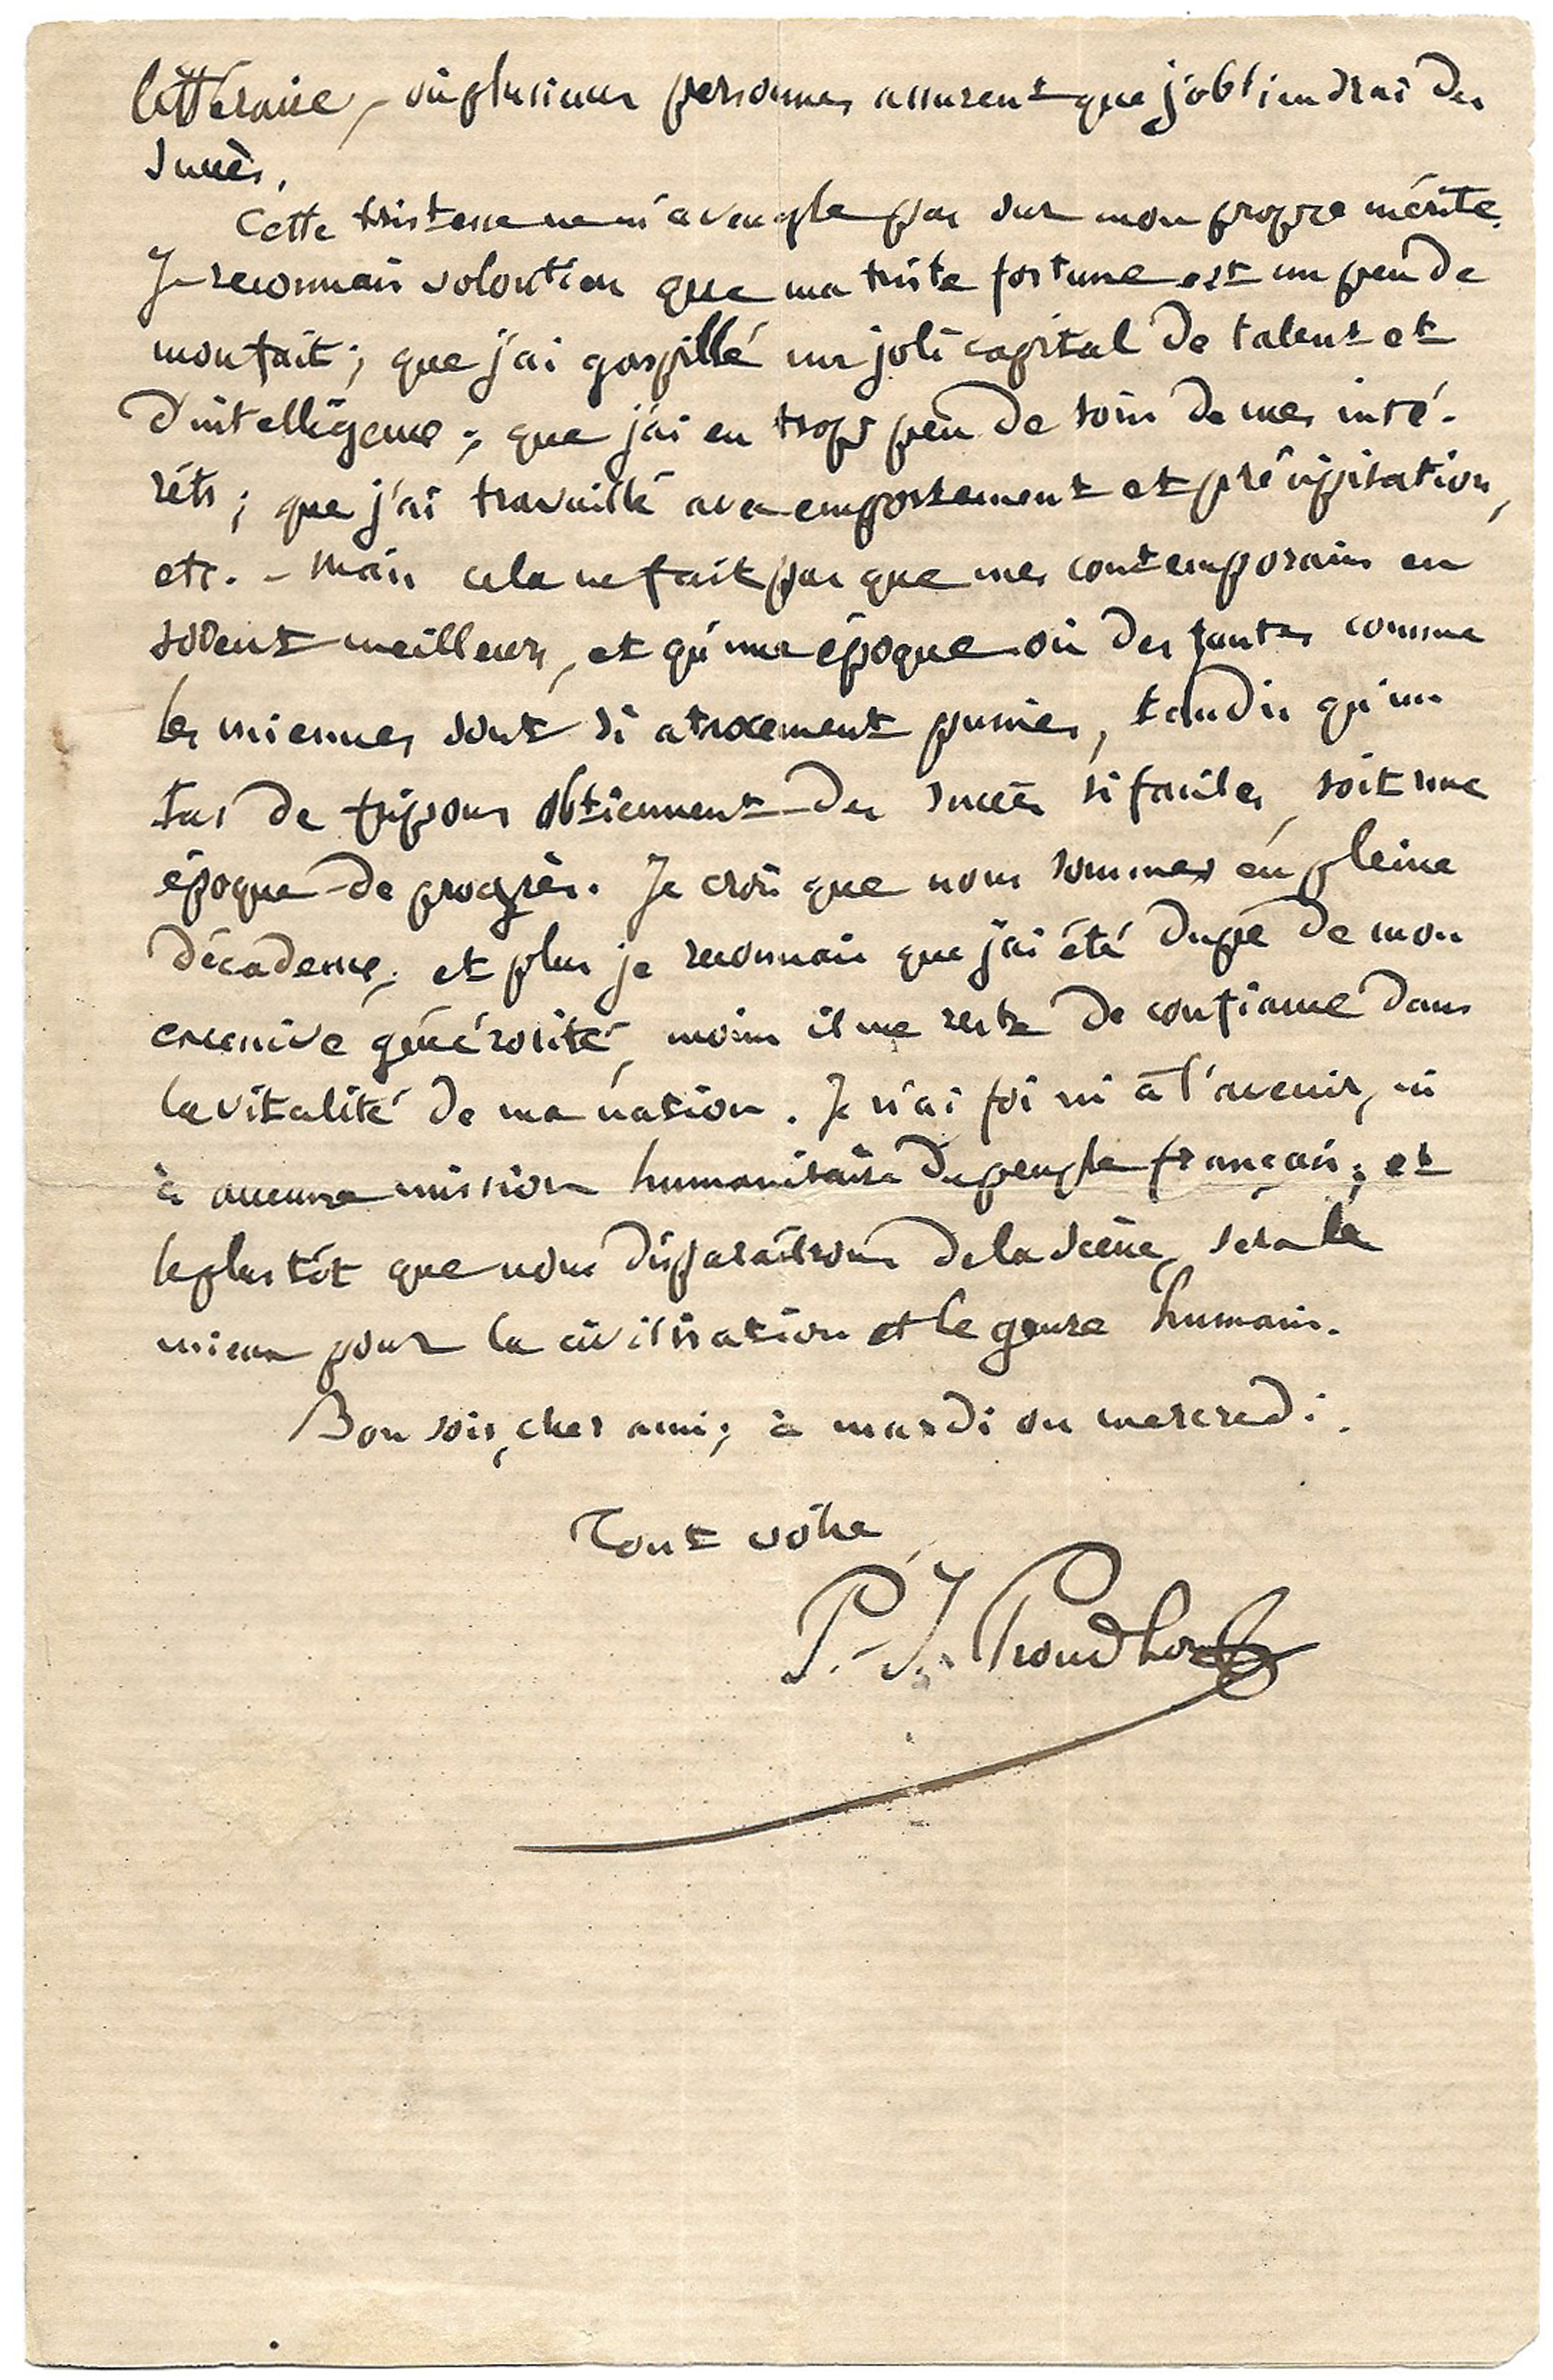 littéraire, où plusieurs personnes assurent que j'obtiendrai des
succès.
Cette tristesse ne m'aveugle pas sur mon propre mérite.
Je reconnais volontiers que ma triste fortune est un peu de
mon fait ; que j'ai gaspillé un joli capital de talent et
d'intelligence ; que j'ai eu trop peu de soin de mes inté-
rêts ; que j'ai travaillé avec emportement et précipitation,
etc. - Mais cela ne fait pas que mes contemporains en
soient meilleurs, et qu'une époque où des fautes comme
les miennes sont si atrocement punies, tandis qu'un
tas de fripons obtiennent des succès si faciles, soit une
époque de progrès. Je crois que nous sommes en pleine
décadence ; et plus je reconnais que j'ai été dupe de mon
excessive générosité, moins il me reste de confiance dans
la vitalité de ma nation. Je n'ai foi ni à l'avenir, ni
à aucune mission humanitaire du peuple français ; et
le plus tôt que nous disparaîtrons de la scène, sera le
mieux pour la civilisation et le genre humain.
Bonsoir, cher ami ; à mardi ou mercredi.
Tout vôtre
P.-J. Proudhon